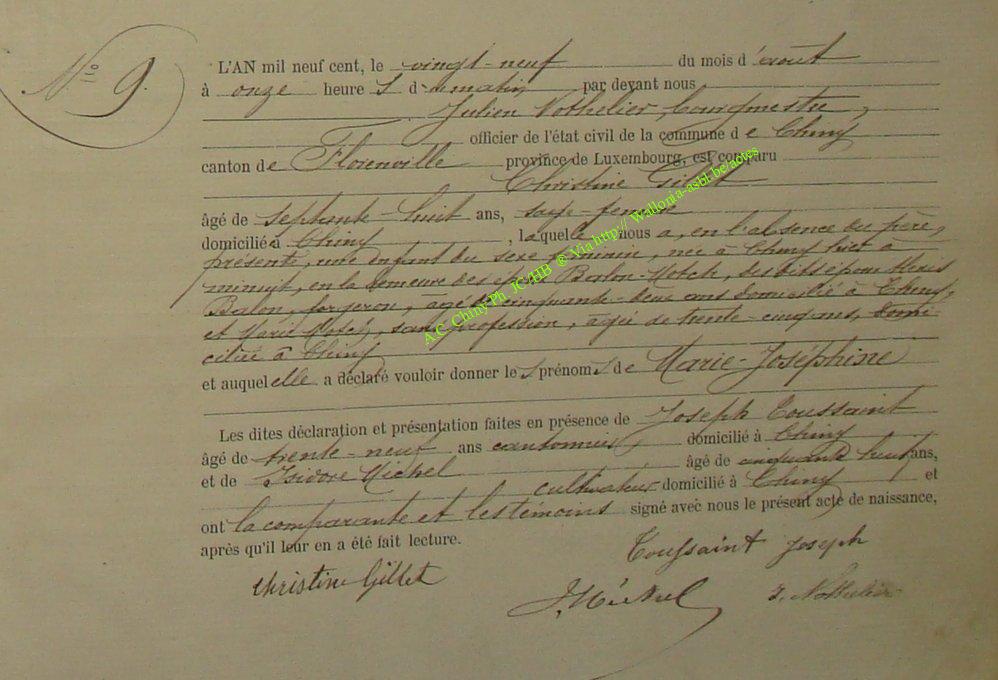 N° 9.
L'AN mil neuf cent, le vingt-neuf du mois d'août
à onze heures du matin par devant nous
Julien Nothelier, bourgmestre,
officier de l'état civil de la commune de Chiny
canton de Florenville province de Luxembourg, est comparu
Christine Gillet
âgé de septante-huit ans, sage-femme
domiciliée à Chiny, laquelle nous a, en l'absence du père,
présenté, une enfant du sexe féminin, née à Chiny hier à
minuit, en la demeure des époux Balon-Motch, des dits époux
Balon, forgeron, âgé de cinquante-deux ans domicilié à Chiny,
et Marie Motch, sans profession, âgée de trente-cinq ans, domi-
ciliée à Chiny
et auquel elle a déclaré vouloir donner les prénoms de Marie-Joséphine
Les dites déclaration et présentation faites en présence de Joseph Toussaint
âgé de trente-neuf ans cantonnier, domicilié à Chiny
et de Isidore Michel âgé de cinquante huit ans,
cultivateur domicilié à Chiny et
ont la comparante et les témoins signé avec nous le présent acte de naissance,
après qu'il leur en a été fait lecture.
Toussaint Joseph
Christine Gillet
I. Michel
J. Nothelier
A.C. Chiny Ph. JC/HB ® Via http://Wallonia-asbl.be/actes